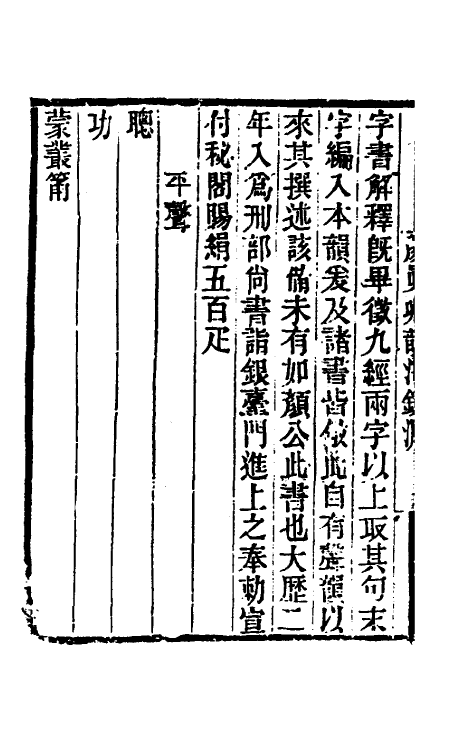 字書解釋旣畢徵九經兩字以上取其句末
字編入本韻爰及諸書皆倣此自有聲韻以
來其撰述該備未有如顏公此書也大歷二
年入爲刑部尚書詣銀臺門進上之奉勅宣
付秘閣賜絹五百疋
平聲
聰
功
蒙叢筩